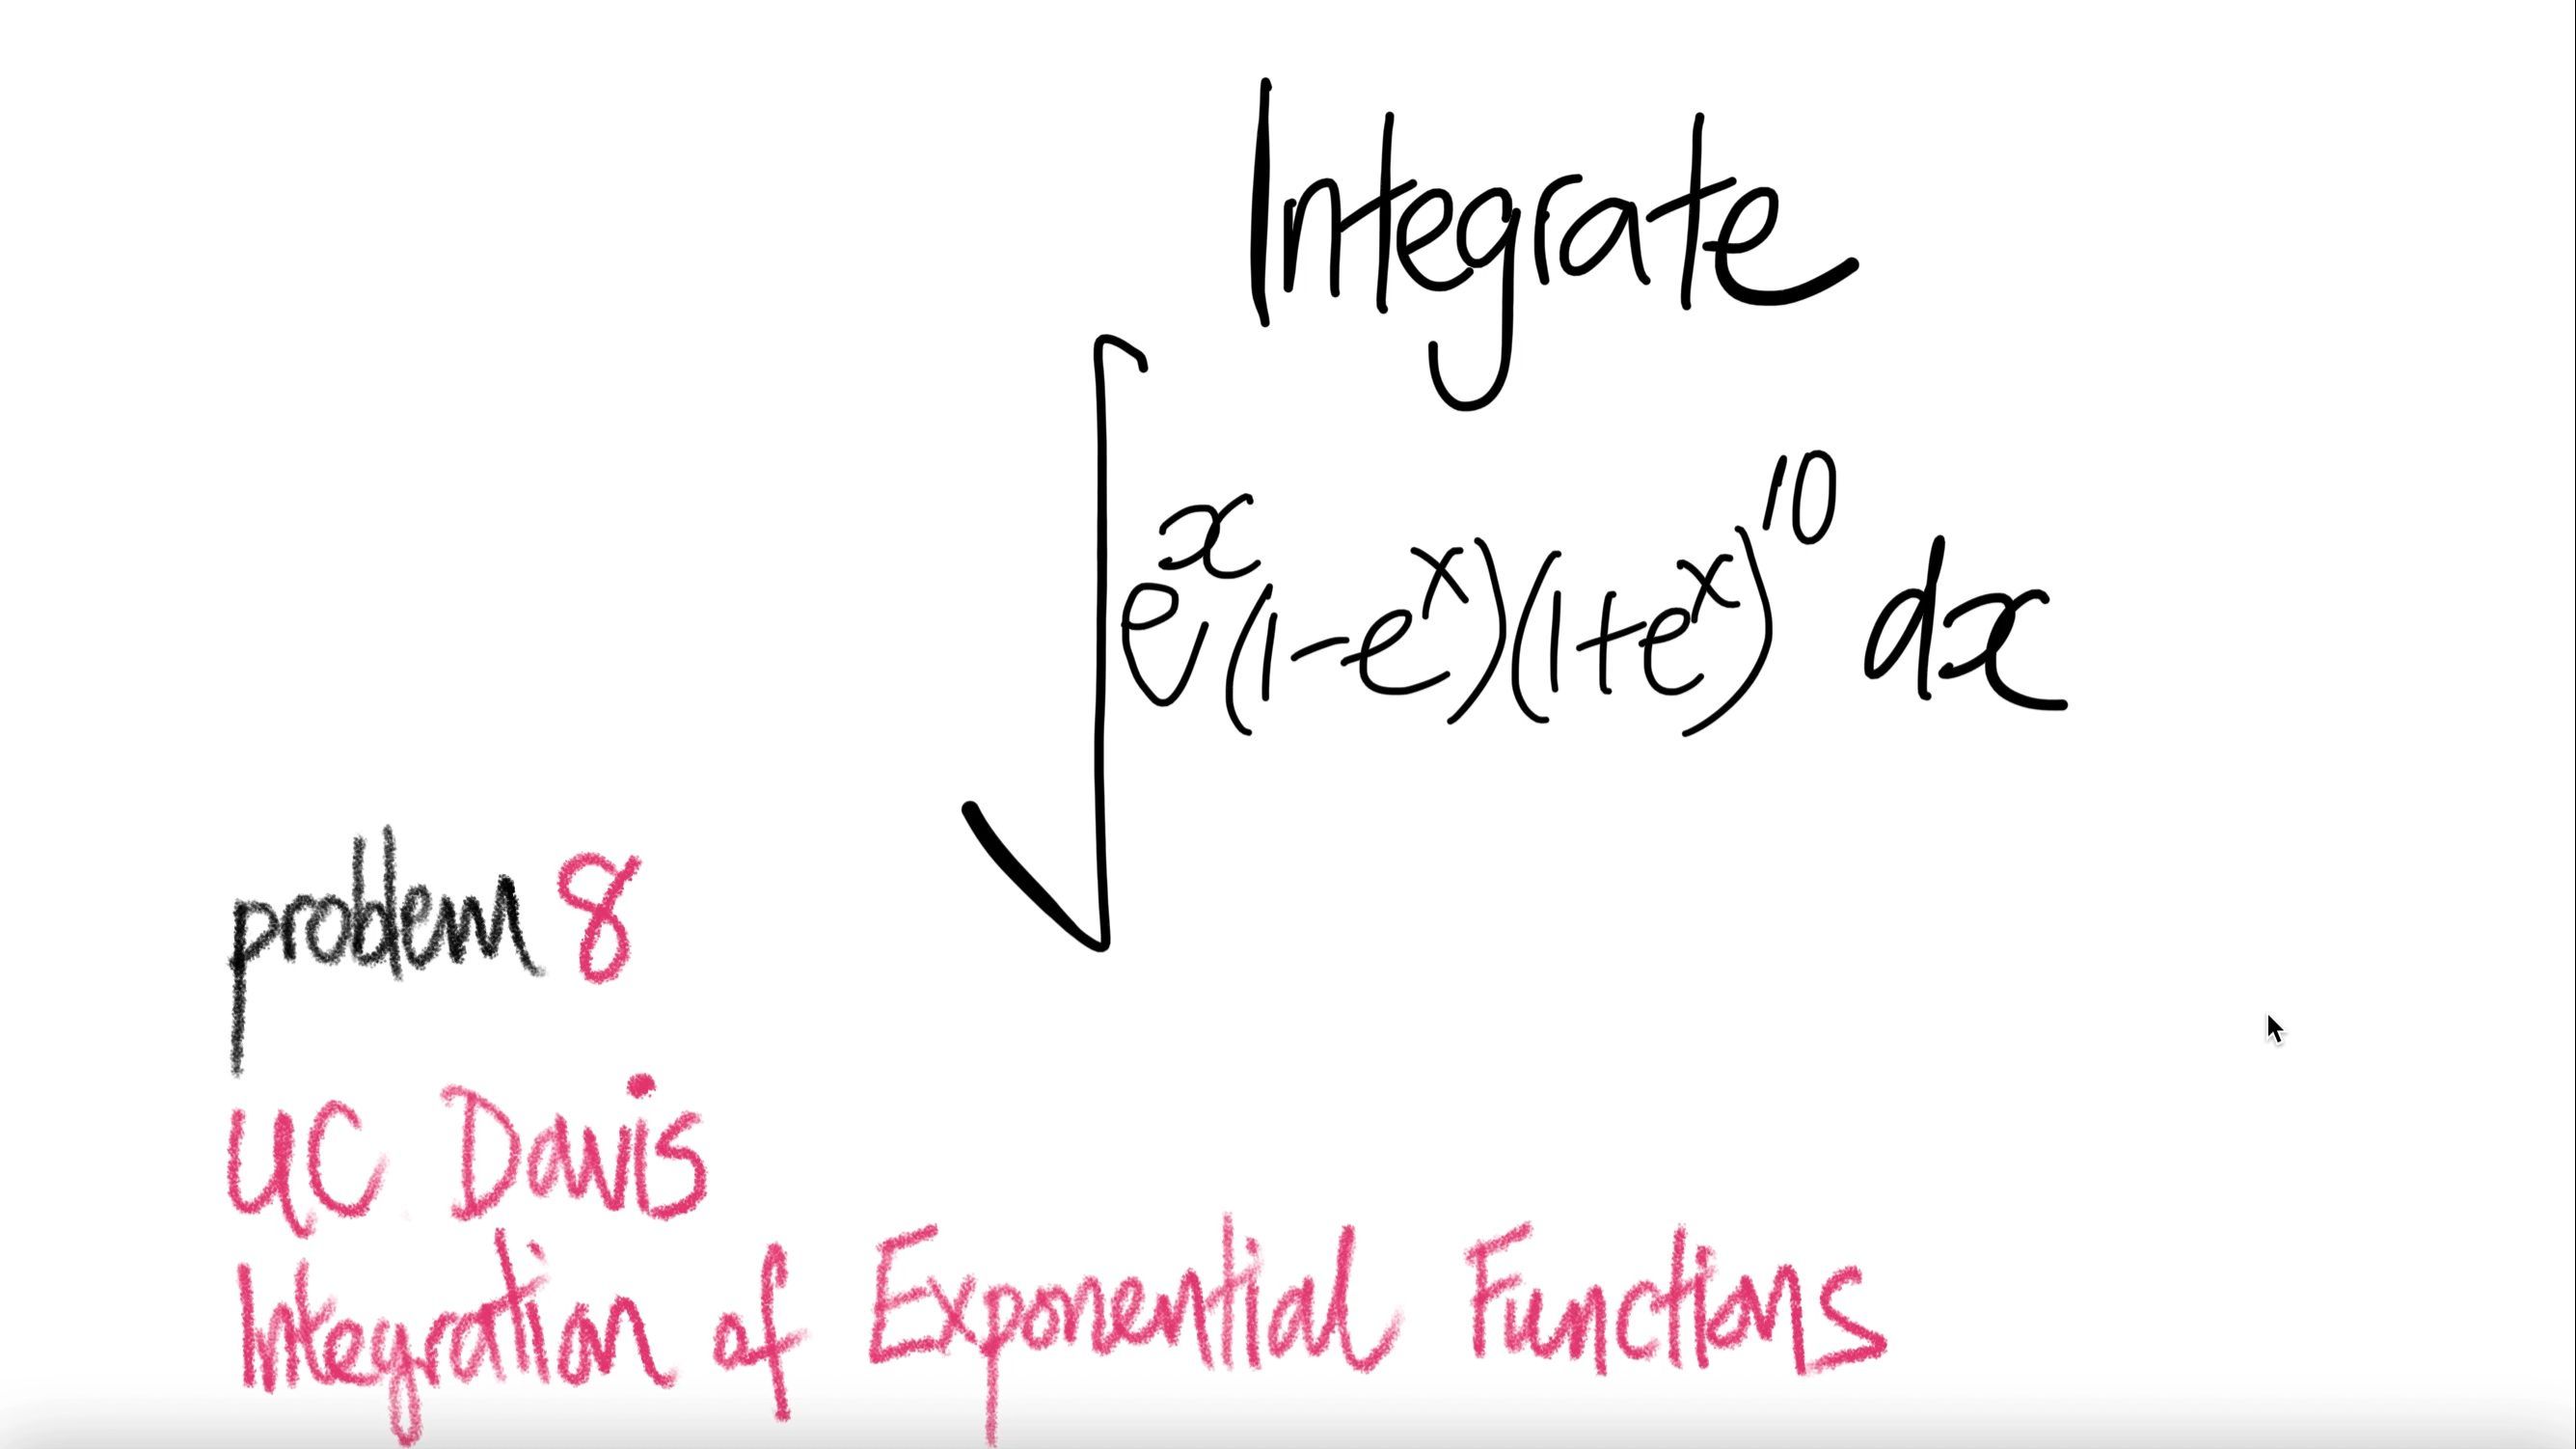 Integrate
∫ eˣ(1-eˣ)(1+eˣ)¹⁰ dx
problem 8
UC Davis
Integration of Exponential Functions